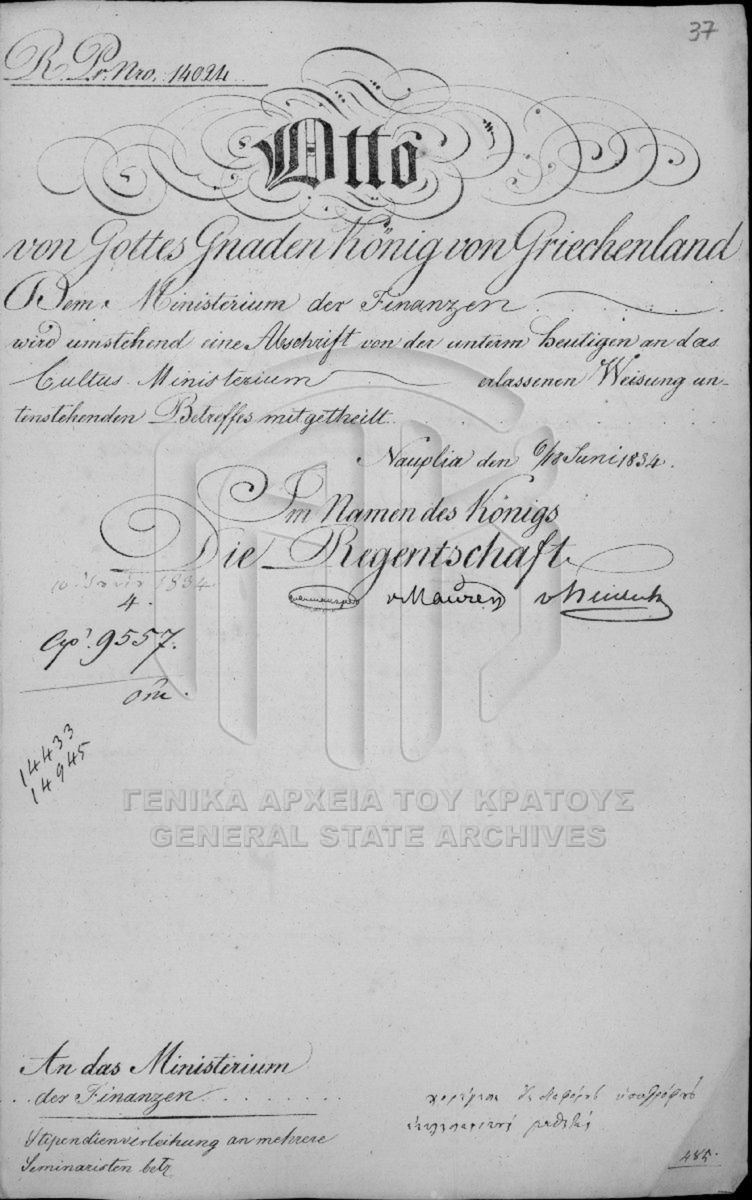 37
R. Pr. Nro. 14024
Otto
von Gottes Gnaden König von Griechenland
Dem Ministerium der Finanzen
wird umstehend eine Abschrift von der unterm heutigen an das
Cultus Ministerium erlassenen Weisung un-
tenstehenden Betreffes mitgetheilt.
Nauplia den 6/18 Juni 1834.
Im Namen des Königs
Die Regentschaft
vMaurer
10 1834
4.
9557.
14433
14945
ΓΕΝΙΚΑ ΑΡΧΕΙΑ ΤΟΥ ΚΡΑΤΟΥΣ
GENERAL STATE ARCHIVES
An das Ministerium
der Finanzen
Stipendienverleihung an mehrere
Seminaristen betr.
485.